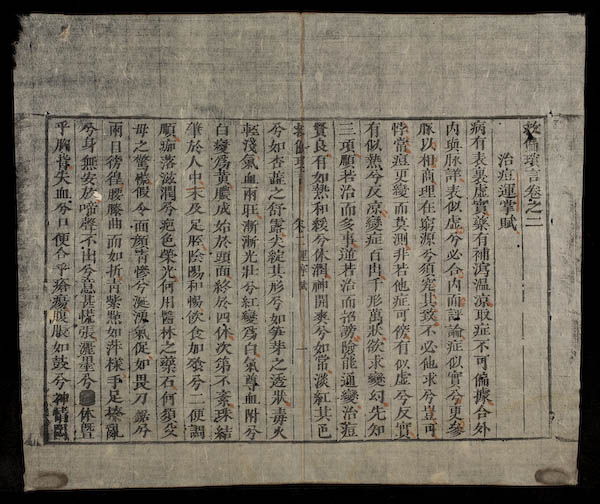 救偏瑣言卷之二
治痘運掌賦
病有表裏虛實藥有補瀉溫凉取症不可偏據合外
內與脉詳表似虛兮必合內而評論症似實兮更參
脉以相商理在窮源兮須究其致不必他求兮豈可
悖常痘更變而莫測非若他症可倣有似虛兮反實
有似熱兮反凉變症百出千形萬狀欲求變幻先知
三項順若治而多事逆若治而招謗險能通變治痘
賢良有如熱和緩兮体潤神開爽兮如常淡紅其色
兮如杏蕊之舒露尖綻其形兮如笋芽之透狀毒火
輕淺氣血兩旺漸漸光壯兮紅變為白氣尊血附兮
白變為黃膿成始於頭面終於四体次第不紊珠結
筆於人中末及足脛陰陽和暢飲食加飡兮二便調
順痂落滋潤兮疤色榮光何用醫林之藥石何須父
母之驚惶假令面顏青慘兮涎洩氣促如畏刀鋸兮
兩目徬徨腰膝曲而如折青紫點如洋樣手足擾亂
兮身無安放啼聲不出兮悶甚慌張潑墨兮休暨
乎胸背失血兮口便合乎瘡瘍腹脹如鼓兮神情